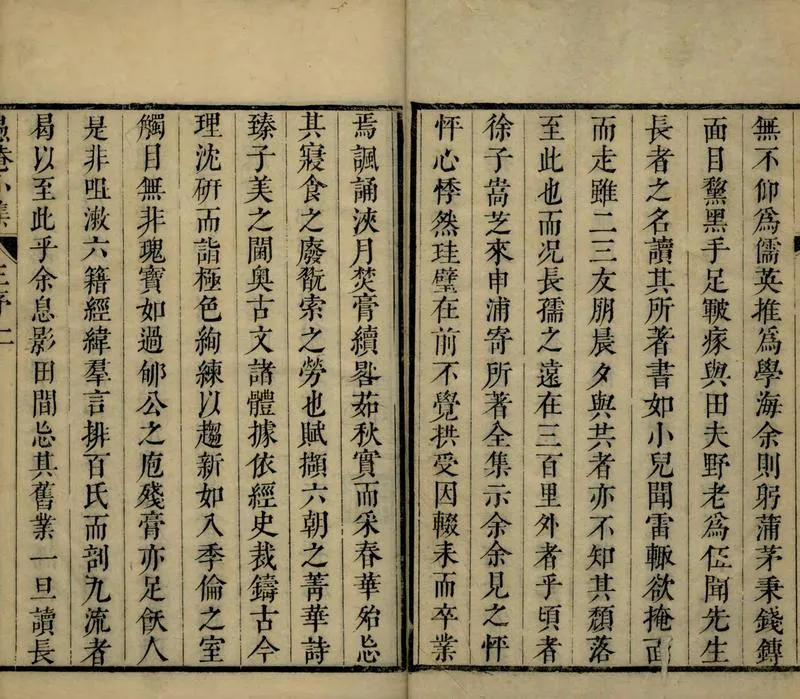 無不仰爲儒英推爲學海余則躬蒲茅秉錢鎛
面目黧黑手足皸瘃與田夫野老爲伍聞先生
長者之名讀其所著書如小兒聞雷輙欲掩面
而走雖二三友朋晨夕與共者亦不知其頹落
至此也而况長孺之遠在三百里外者乎頃者
徐子嵩芝來申浦寄所著全集示余余見之怦
怦心悸然珪璧在前不覺拱受因輟耒而卒業
焉諷誦浹月焚膏續晷茹秋實而采春華殆忘
其寢食之廢翫索之勞也賦擷六朝之菁華詩
臻子美之閫奥古文諸體據依經史裁鑄古今
理沈研而詣極色絢練以趨新如入季倫之室
觸目無非瑰寳如過郇公之庖殘膏亦足飫人
是非咀漱六籍經緯羣言排百氏而剖九流者
曷以至此乎余息影田間忘其舊業一旦讀長
愚菴小集 王序 二